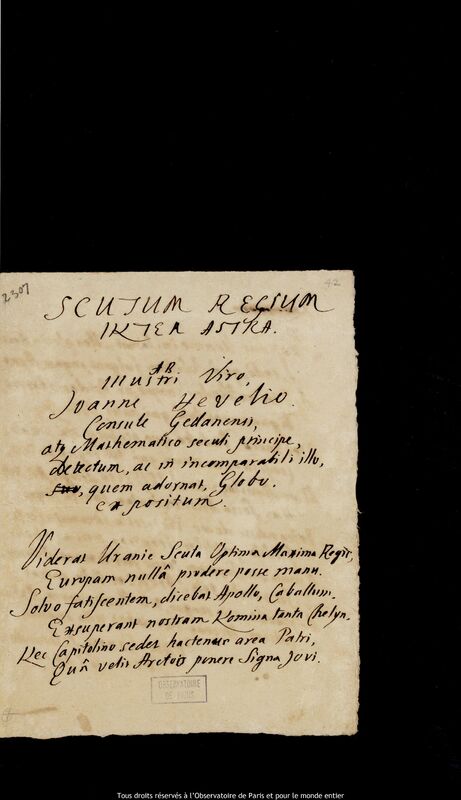 2307
42
SCUTUM REGIUM
INTER ASTRA.
AB
Illustri Viro,
Joanne Hevelio.
Consule Gedanensi,
atq Mathematico seculi principe,
detectum, ac in incomparabili illo,
suo, quem adornat, Globo.
expositum.
Viderat Uranie Scuta Optima Maxima Regis,
Europam nullâ prodere posse manu.
Solvo fatiscentem, dicebat Apollo, Caballum.
Exsuperant nostram Nomina tanta Chelyn.
Nec Capitolino sedet hactenus area Patri,
Quâ velit Arctois ponere Signa Jovi.
OBSERVATOIRE
DE PARIS
Tous droits réservés à l'Observatoire de Paris et pour le monde entier